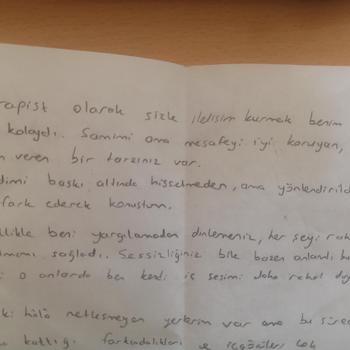 rapist olarak sizle iletişim kurmak benim
kolaydı.. Samimi ama mesafeyi iyi koruyan,
veren bir tarzınız var.
dimi baskı altında hissetmeden, ama yönlendirild
fark ederek konuştum.
llikle beni yargılamadan dinlemeniz, her şeyi rah
sağladı. Sessizliğiniz bile bazen anlamlı
o anlarda ben kendi iç sesimi daha rahat duy
ki hâlâ netleşmeyen yerlerim var ama bu süre
kattığı farkındalıkları ve içgörüleri çok